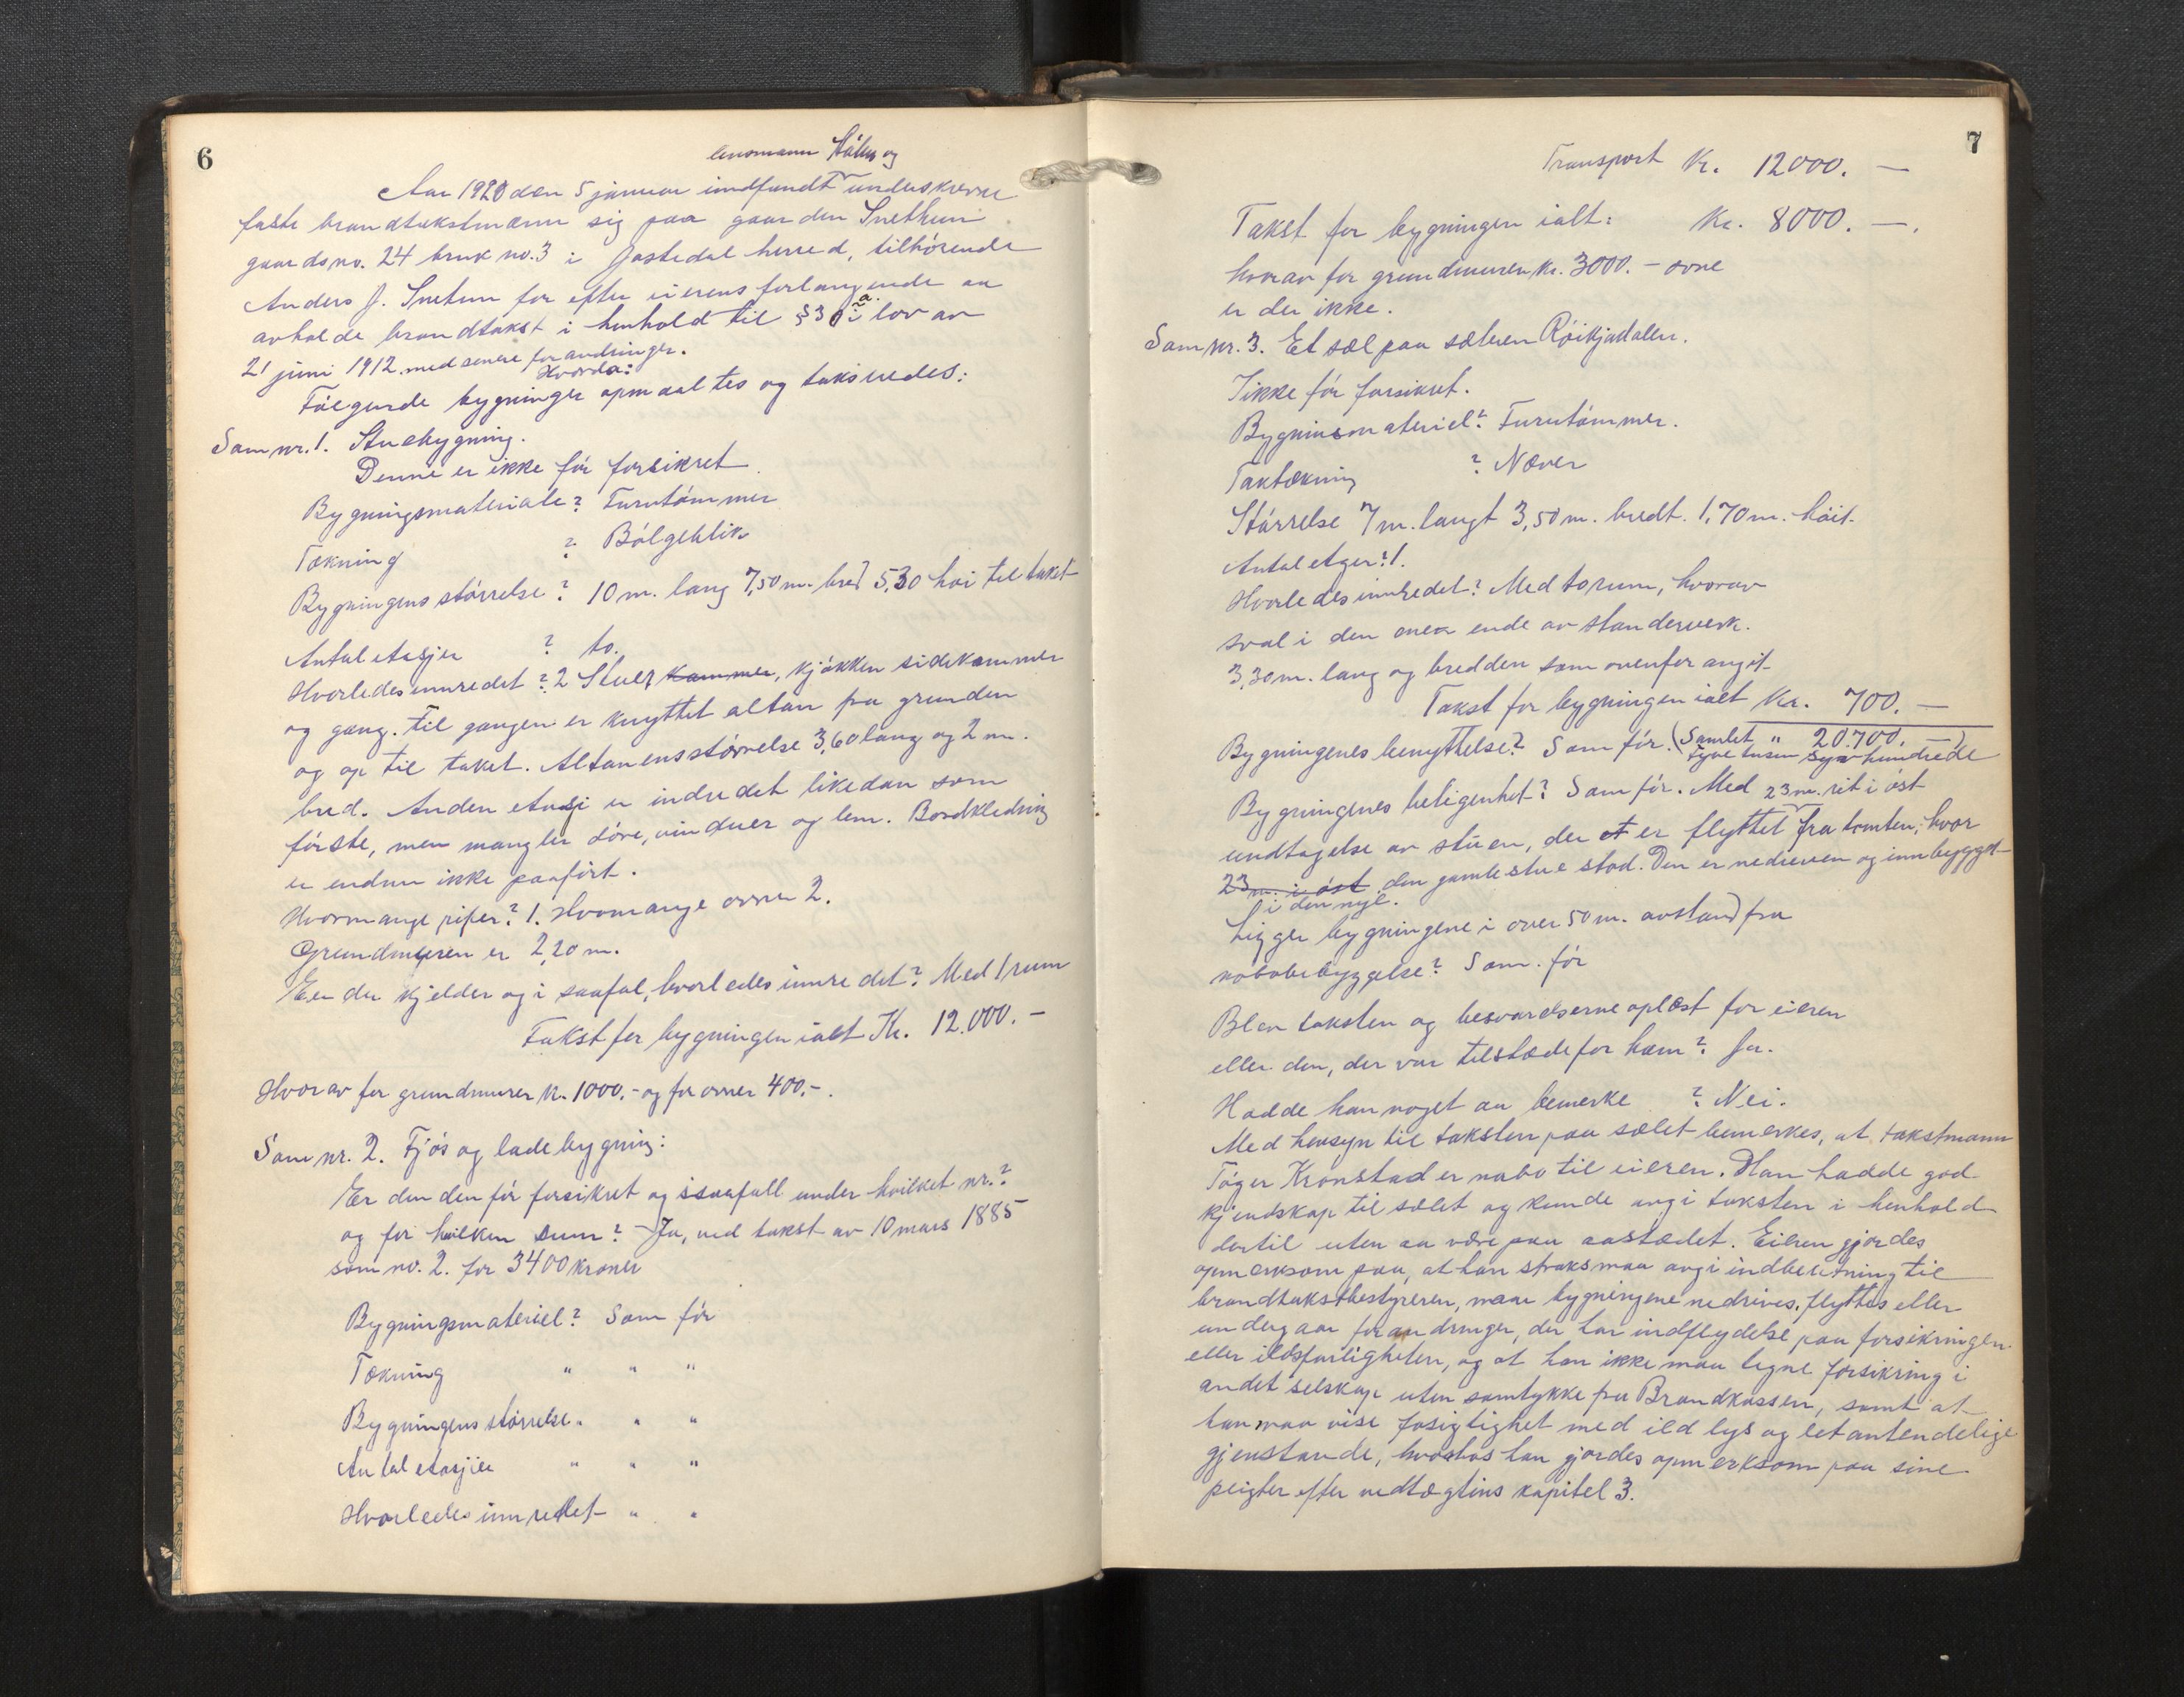 6
lensmann Håheim og
Aar 1920 den 5 januar indfandt underskrevne
faste brandtakstmænn sig paa gaarden Snethun
gaardsno. 24 bruk no. 3 i Jostedal herred, tilhørende
Anders J. Snetun for efter eierens forlangende aa
avholde brandtakst i henhold til § 30 a i lov av
21 juni 1912 med senere forandringer.
Hvorda:
Følgende bygninger opmaaltes og takseredes:
Som nr. 1. Stuebygning.
Denne er ikke før forsikret.
Bygningsmateriale? Furutømmer
Tækning ? Bølgeblik
Bygningens størrelse? 10 m. lang 7,50 m. bred 5,30 høi til taket
Antal etasjer ? to.
Hvorledes innredet? 2 Stuer, kammer, kjøkken sidekammer
og gang. Til gangen er knyttet altan fra grunden
og op til taket. Altanens størrelse 3,60 lang og 2 m.
bred. Anden etasji er indredet likedan som
første, men mangler døre, vinduer og lem. Bordkledning
er endnu ikke paaført.
Hvormange piper? 1. Hvomange ovner 2.
Grundmuren er 2,20 m.
Er der kjelder og i saafal, hvorledes innredet? Med 1 rum
Takst for bygningen ialt Kr. 12.000.-
Hvorav for grundmurer kr. 1000.- og for ovner 400.-.
Som nr. 2. Fjøs og ladebygning:
Er den den før forsikret og isaafall under hvilket nr.?
og for hvilken sum? Ja, ved takst av 10 mars 1885
som no. 2. for 3400 kroner
Bygningsmateriel? Som før
Tækning " " "
Bygningens størrelse " " "
Antal etasjer " " "
Hvorledes innredet " "
7
Transport Kr. 12000. —
Takst for bygningen ialt: Kr. 8000. —.
hvorav for grundmuren kr. 3000.- ovne
er der ikke.
Som nr. 3. Et sæl paa sæteren Røikjadalen.
Ikke før forsikret.
Bygninsmateriel? Furutømmer.
Taktækning ? Næver
Størrelse 7 m. langt 3,50 m. bredt. 1,70 m. høit.
Antal etger? 1.
Hvorledes innredet? Med to rum, hvorav
sval i den ene ende av standerverk.
3,30 m. lang og bredden som ovenfor angit
Takst for bygningen ialt Kr. 700. —
Bygningenes benyttelse? Som før. (Samlet " 20700. —)
tyve tusen syv hundrede
Bygningenes beligenhet? Som før. Med 23 m. ret i øst
undtagelse av stuen, der er flyttet fra tomten, hvor
23 m. i øst den gamle stue stod. Den er nedreven og innbygget
i den nye.
Ligger bygningene i over 50 m. avstand fra
nabobebyggelse? Som før
Blev taksten og besvarelserne oplæst for eieren
eller den, der var tilstæde for ham? Ja.
Hadde han noget aa bemerke ? Nei.
Med hensyn til taksten paa sælet bemerkes, at takstmann
Tøger Kronstad er nabo til eieren. Han hadde god
kjendskap til sælet og kunde angi taksten i henhold
dertil uten aa være paa aastædet. Eieren gjordes
opmerksom paa, at han straks maa angi indberetning til
brandtakstbestyreren, naar bygningene nedrives, flyttes eller
undergaar forandringer, der har indflydelse paa forsikringen
eller ildsfarligheten, og at han ikke maa tegne forsikring i
andet selskap uten samtykke fra Brandkassen, samt at
han maa vise fosigtighet med ild lys og letantendelige
gjenstande, hvorhos han gjordes opmerksom paa sine
pligter efter vedtægtens kapitel 3.